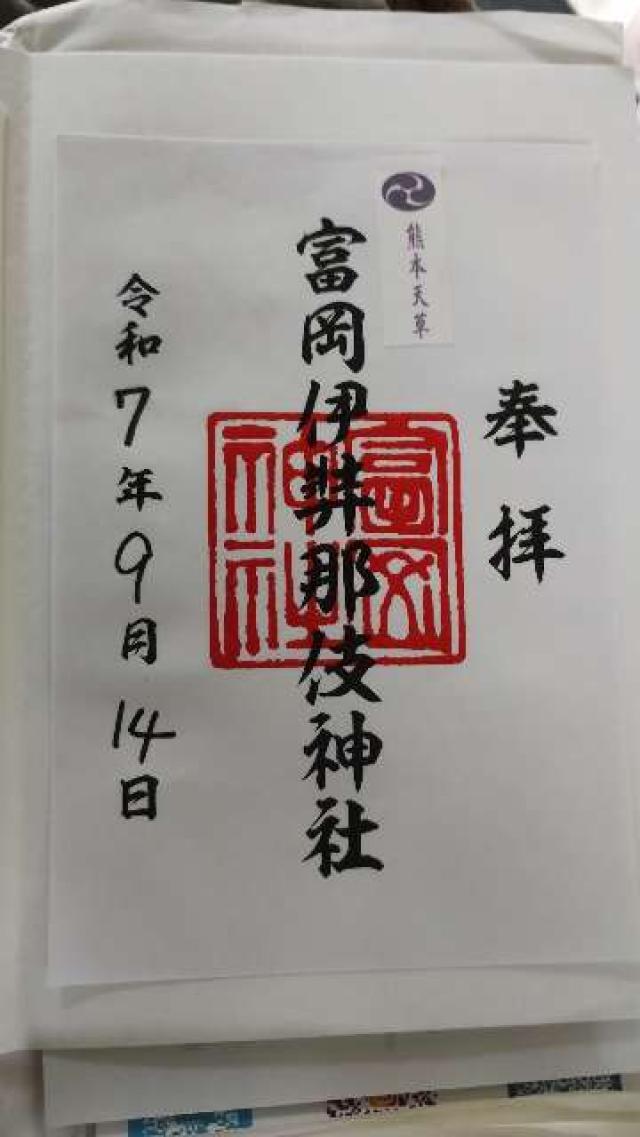 奉拝
熊本天草
富岡伊弉那伎神社
富岡神社
令和7年9月14日